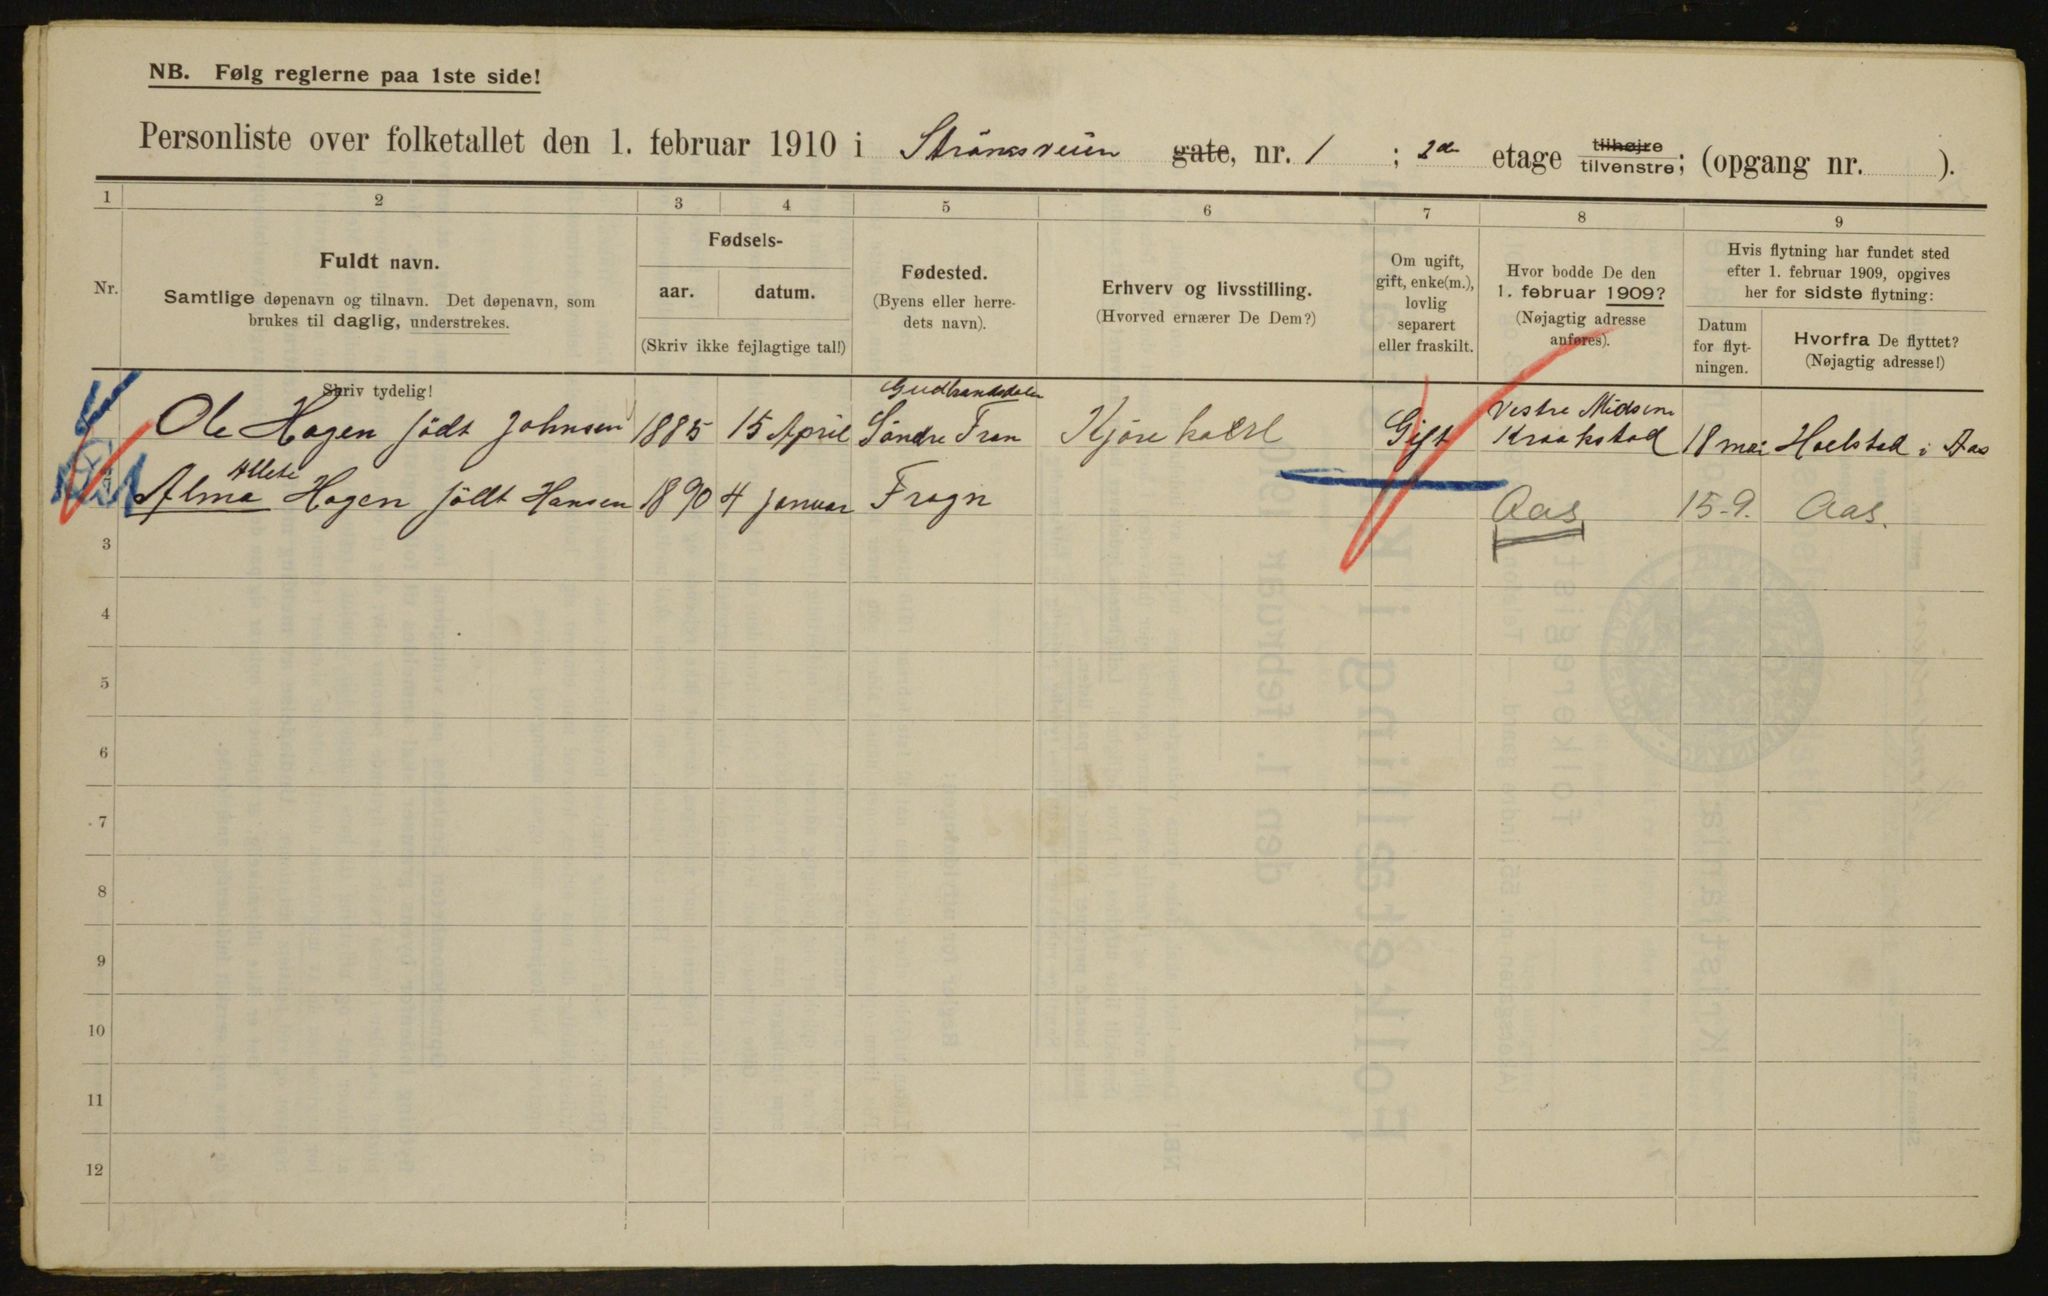 NB. Følg reglerne paa 1ste side!
Personliste over folketallet den 1. februar 1910 i Strømsveien gate, nr. 1 ; 2den etage tilhøjre tilvenstre; (opgang nr. ).
1 2 3 4 5 6 7 8 9
Nr.
Fuldt navn.
Samtlige døpenavn og tilnavn. Det døpenavn, som
brukes til daglig, understrekes.
Skriv tydelig!
Fødsels-
aar. datum.
(Skriv ikke fejlagtige tal!)
Fødested.
(Byens eller herre-
dets navn).
Erhverv og livsstilling.
(Hvorved ernærer De Dem?)
Om ugift,
gift, enke(m.),
lovlig
separert
eller fraskilt.
Hvor bodde De den
1. februar 1909?
(Nøjagtig adresse
anføres).
Hvis flytning har fundet sted
efter 1. februar 1909, opgives
her for sidste flytning:
Datum
for flyt-
ningen.
Hvorfra De flyttet?
(Nøjagtig adresse!)
Gudbrandsdalen
Ole Hagen födt Johnsen 1885 15 April Söndre Fron Kjörekarl Gift Vestre Kraakstad 18 mai i Aas
Alma Hagen födt Hansen 1890 4 Januar Frogn Aas 15-9. Aas.
3
4
5
6
7
8
9
10
11
12